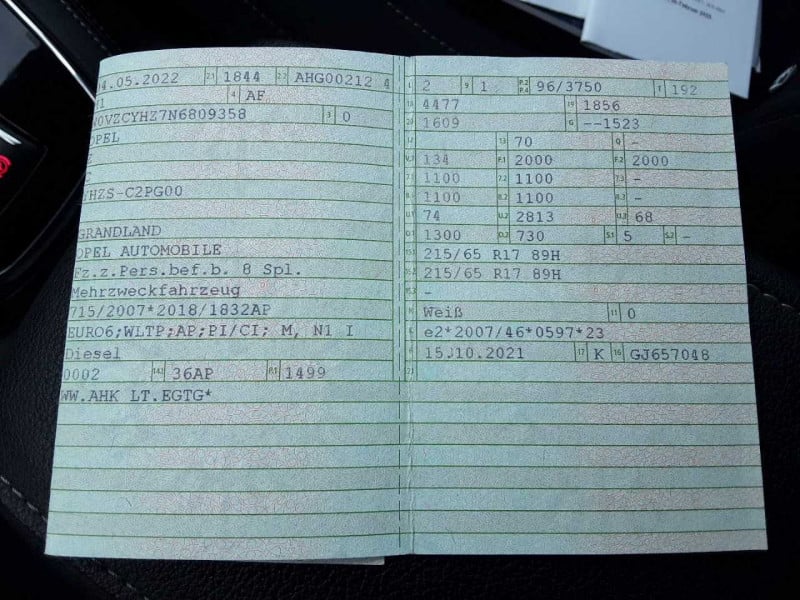 04.05.2022 2.1 1844 2.2 AHG00212 4
4 AF
0VZCYHZ7N6809358 3 0
OPEL
YHZS-C2PG00
GRANDLAND
OPEL AUTOMOBILE
Fz.z.Pers.bef.b. 8 Spl.
Mehrzweckfahrzeug
715/2007*2018/1832AP
EURO6;WLTP;AP;PI/CI; M, N1 I
Diesel
0002 14.1 36AP P.1 1499
WW.AHK LT.EGTG*
L 2 9 1 P.2 P.4 96/3750 T 192
18 4477 19 1856
20 1609 G --1523
12 - 13 70 Q -
V.7 134 F.1 2000 F.2 2000
7.1 1100 7.2 1100 7.3 -
8.1 1100 8.2 1100 8.3 -
U.1 74 U.2 2813 U.3 68
O.1 1300 O.2 730 S.1 5 S.2 -
15.1 215/65 R17 89H
15.2 215/65 R17 89H
15.3 -
R Weiß 11 0
K e2*2007/46*0597*23
6 15.10.2021 17 K 16 GJ657048
21